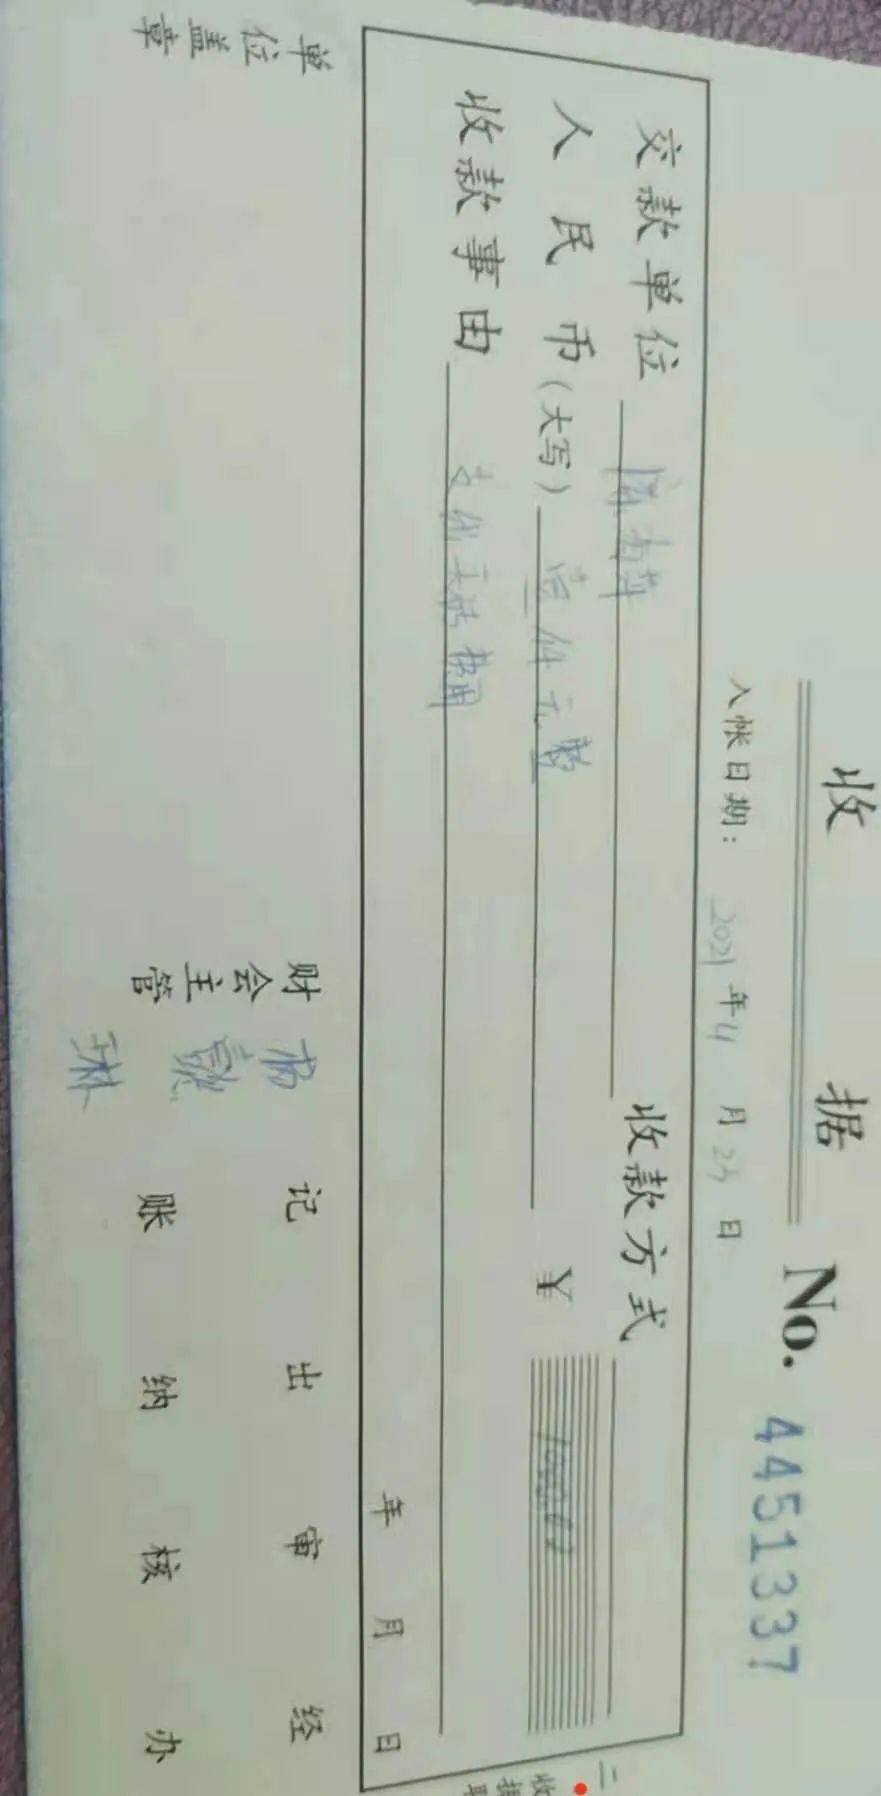 收 据 No. 4451337
入帐日期: 2021 年 11 月 23 日
交款单位 收款方式
人民币(大写) 壹仟元整 ¥ 1000.00
收款事由
年 月 日
单位盖章 财会主管 杨 琳 记账 出纳 审核 经办
二
收据